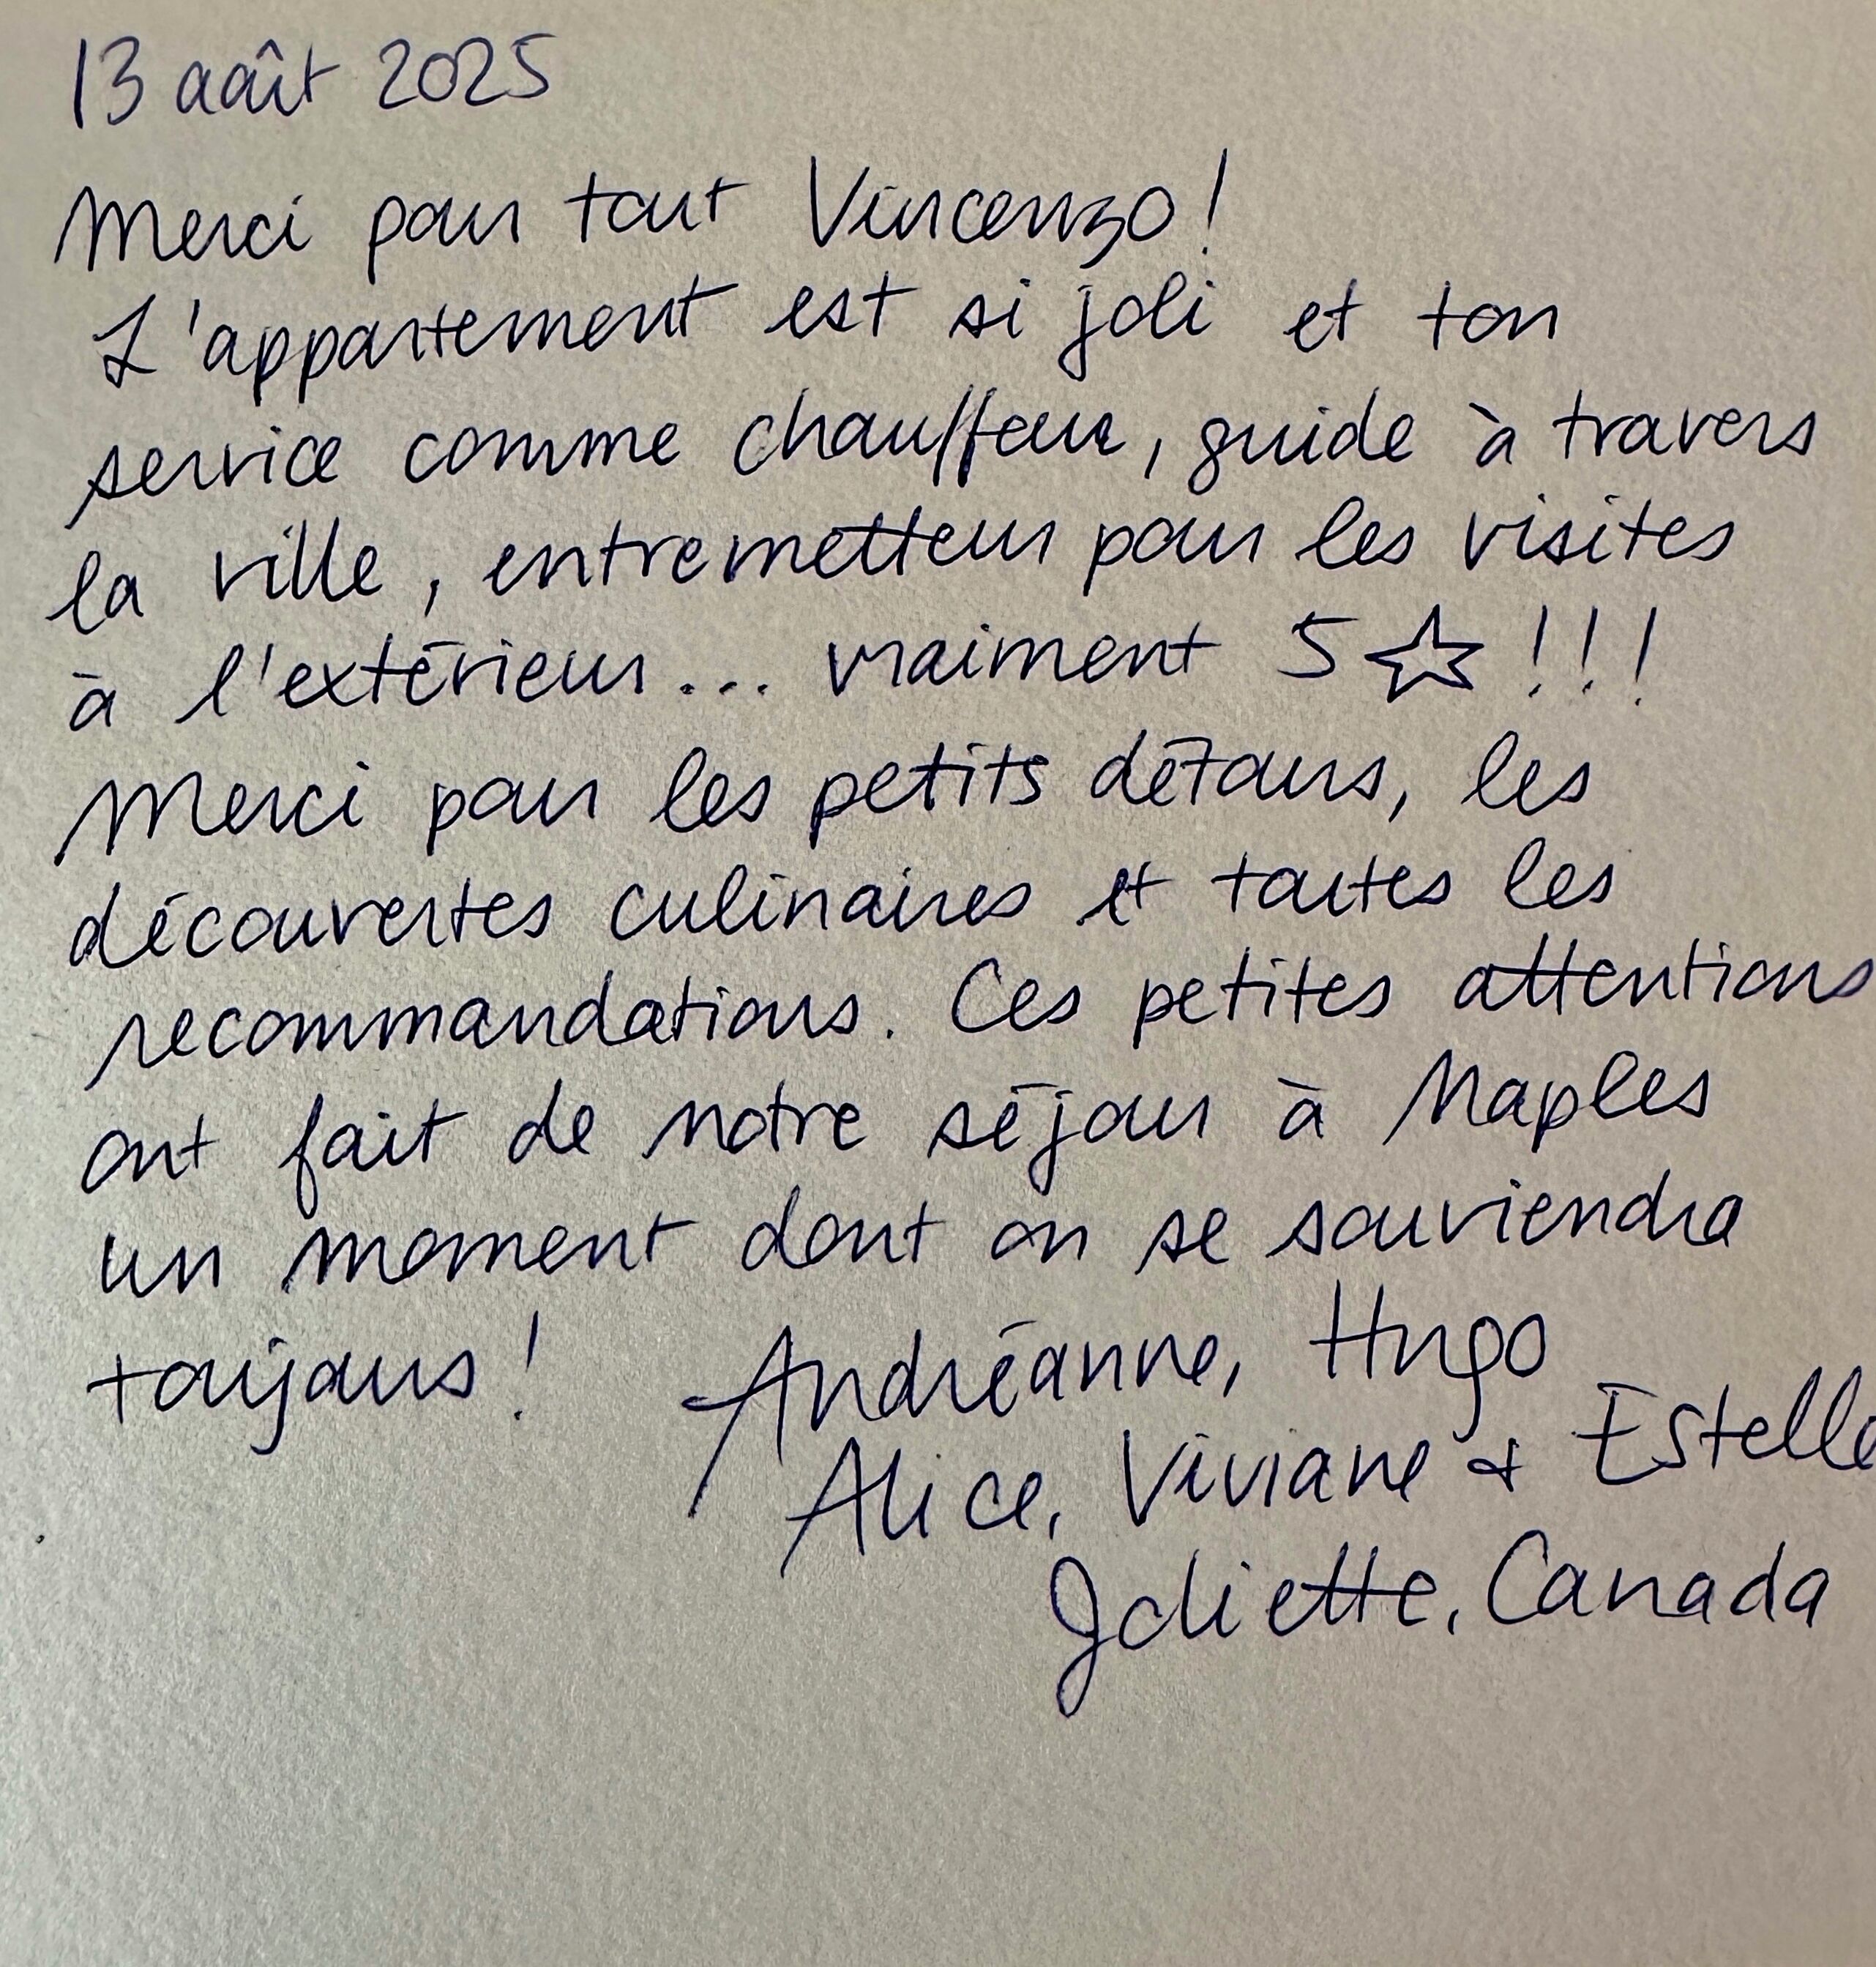 13 août 2025
Merci pour tout Vincenzo!
L'appartement est si joli et ton
service comme chauffeur, guide à travers
la ville, entremetteur pour les visites
à l'extérieur... vraiment 5☆!!!
Merci pour les petits détours, les
découvertes culinaires et toutes les
recommandations. Ces petites attentions
ont fait de notre séjour à Naples
un moment dont on se souviendra
toujours! Andréanne, Hugo
Alice, Viviane & Estelle
Joliette, Canada